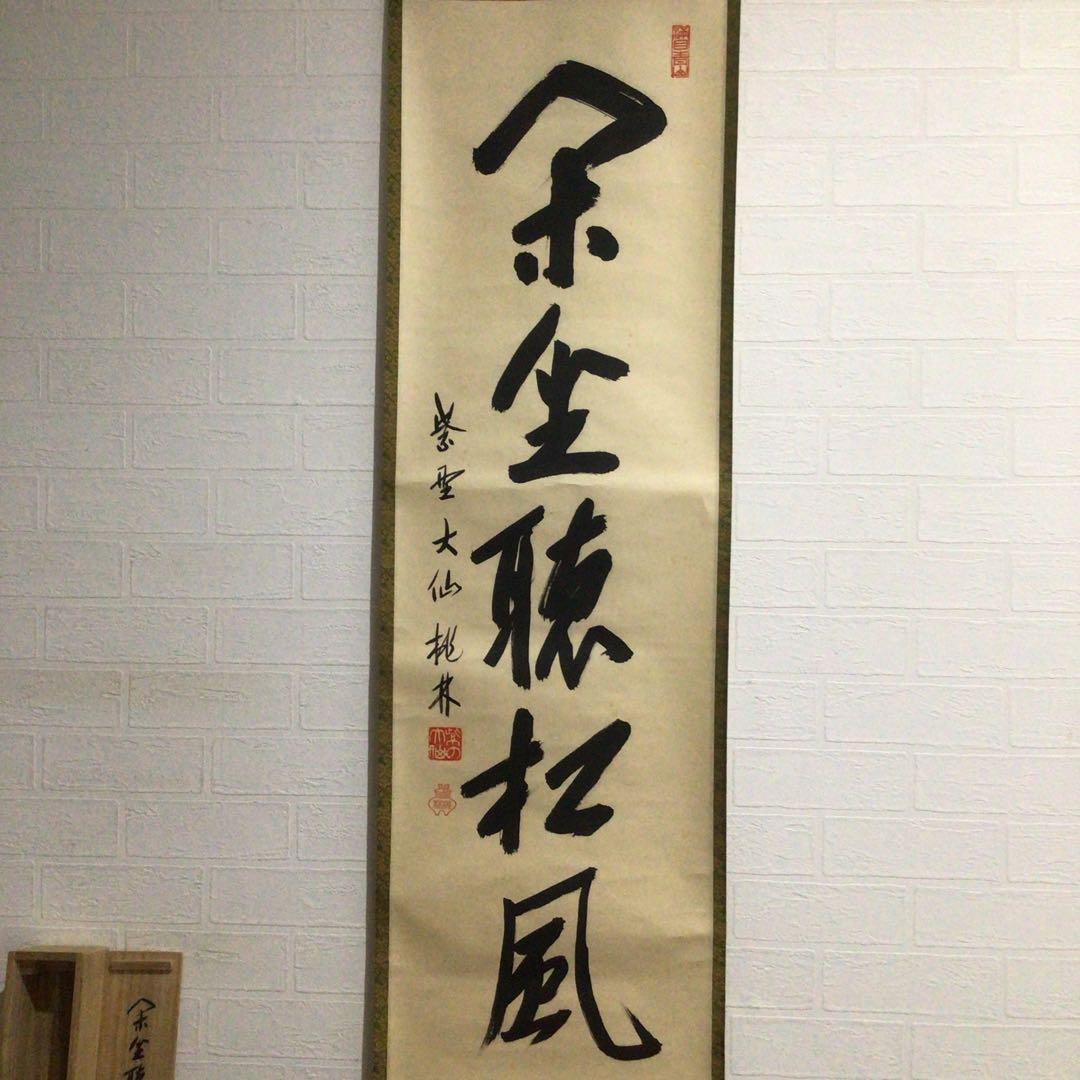 閑坐聴松風
紫野大仙桃林
閑坐聴